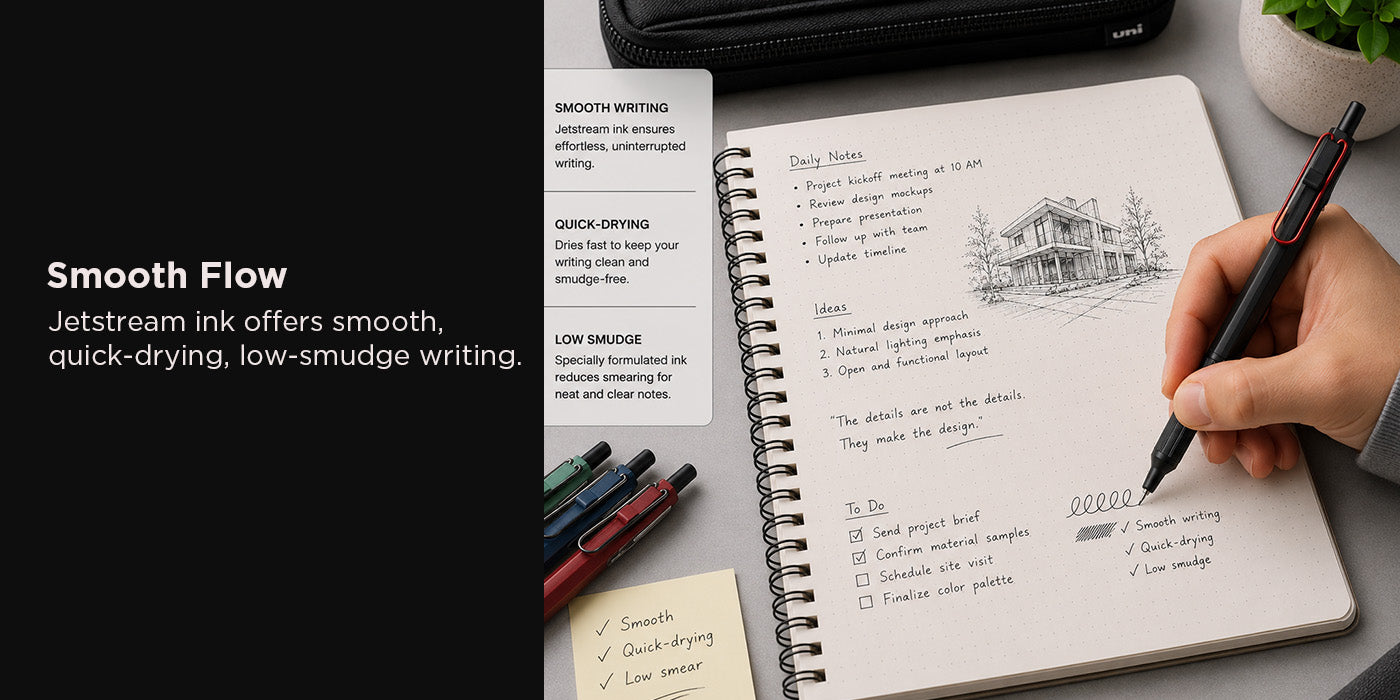 Smooth Flow
Jetstream ink offers smooth,
quick-drying, low-smudge writing.
uni
SMOOTH WRITING
Jetstream ink ensures
effortless, uninterrupted
writing.
QUICK-DRYING
Dries fast to keep your
writing clean and
smudge-free.
LOW SMUDGE
Specially formulated ink
reduces smearing for
neat and clear notes.
Daily Notes
• Project kickoff meeting at 10 AM
• Review design mockups
• Prepare presentation
• Follow up with team
• Update timeline
Ideas
1. Minimal design approach
2. Natural lighting emphasis
3. Open and functional layout
"The details are not the details.
They make the design."
To Do
☑ Send project brief
☑ Confirm material samples
☐ Schedule site visit
☐ Finalize color palette
✓ Smooth writing
✓ Quick-drying
✓ Low smudge
✓ Smooth
✓ Quick-drying
✓ Low smear